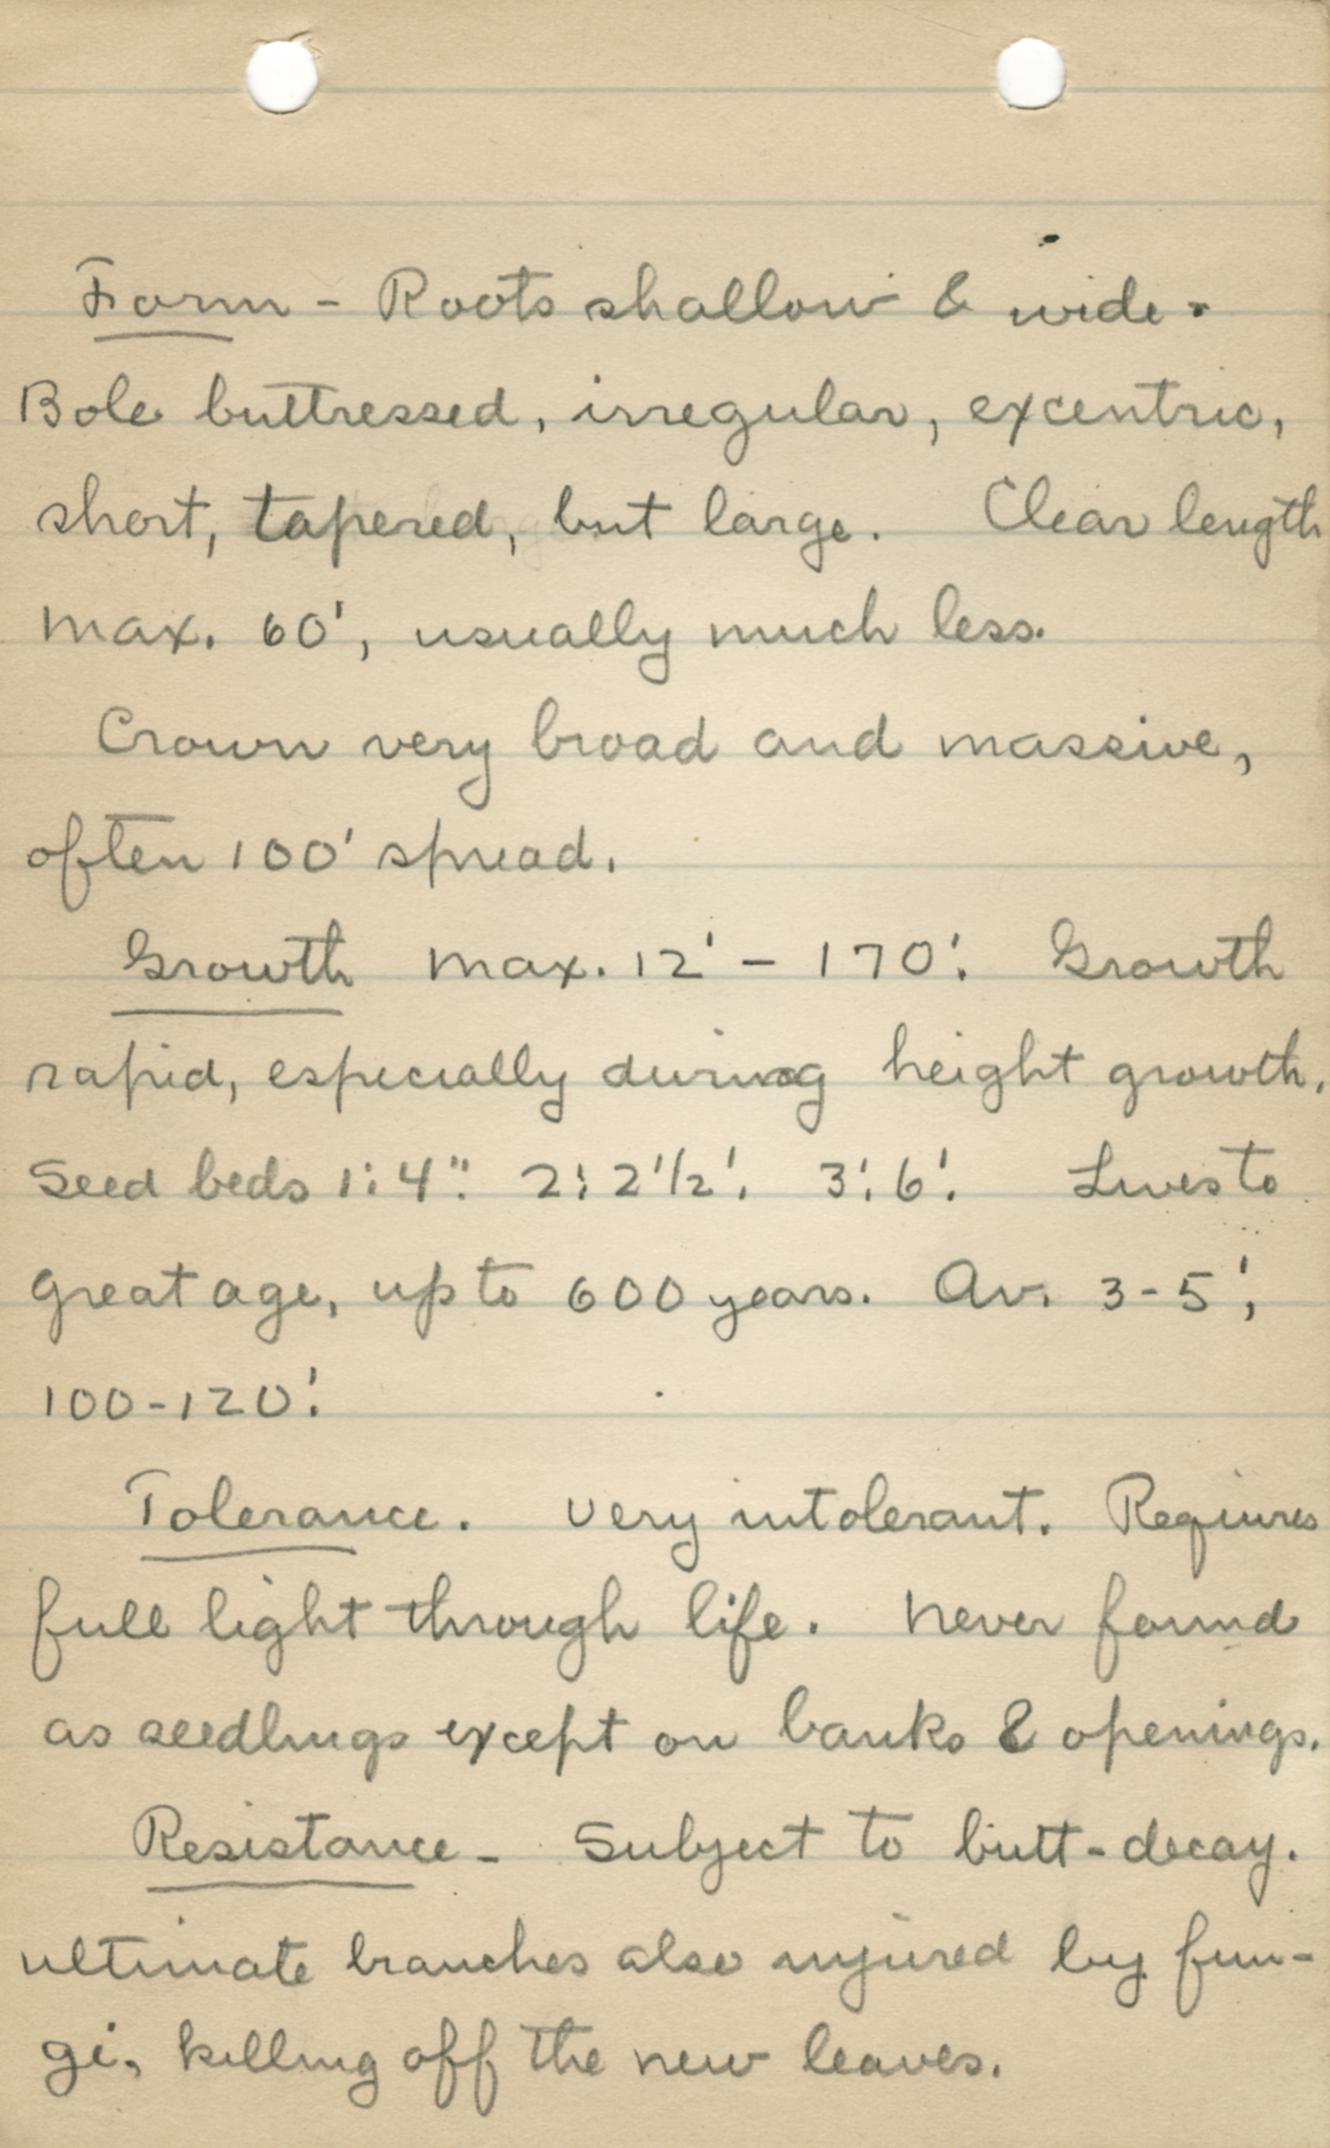 Form - Roots shallow & wide.
Bole buttressed, irregular, excentric,
short, tapered, but large. Clear length
max. 60', usually much less.
Crown very broad and massive,
often 100' spread.
Growth max. 12' - 170'. Growth
rapid, especially during height growth.
Seed beds 1: 4". 2: 2 1/2'. 3: 6'. Lives to
great age, up to 600 years. Av. 3-5',
100-120'.
Tolerance. Very intolerant. Requires
full light through life. Never found
as seedlings except on banks & openings.
Resistance - Subject to butt-decay.
ultimate branches also injured by fun-
gi, killing off the new leaves.